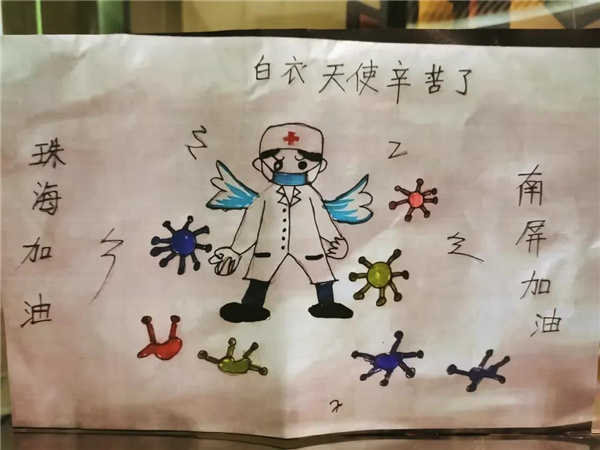 白衣天使辛苦了
珠海加油
南屏加油